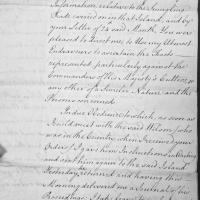 Information relative to the Smuggling
Trade carried on in that Island, and by
your Letter of 24 said Month, You were
pleased to direct me, to Use my Utmost
Endeavours to ascertain the Facts
represented, particularly against the
Commanders of His Majesty's Cutters, or
any other of a Similar Nature and the
Persons concerned
In due Obedience to which, as soon as
I could meet with the said Wilson, who
was in the Country when I received your
Orders, I gave him Instructions in Writing
and sent him again to the said Island
Yesterday returned and having this
Morning delivered me a Journal of his
Proceedings, I take